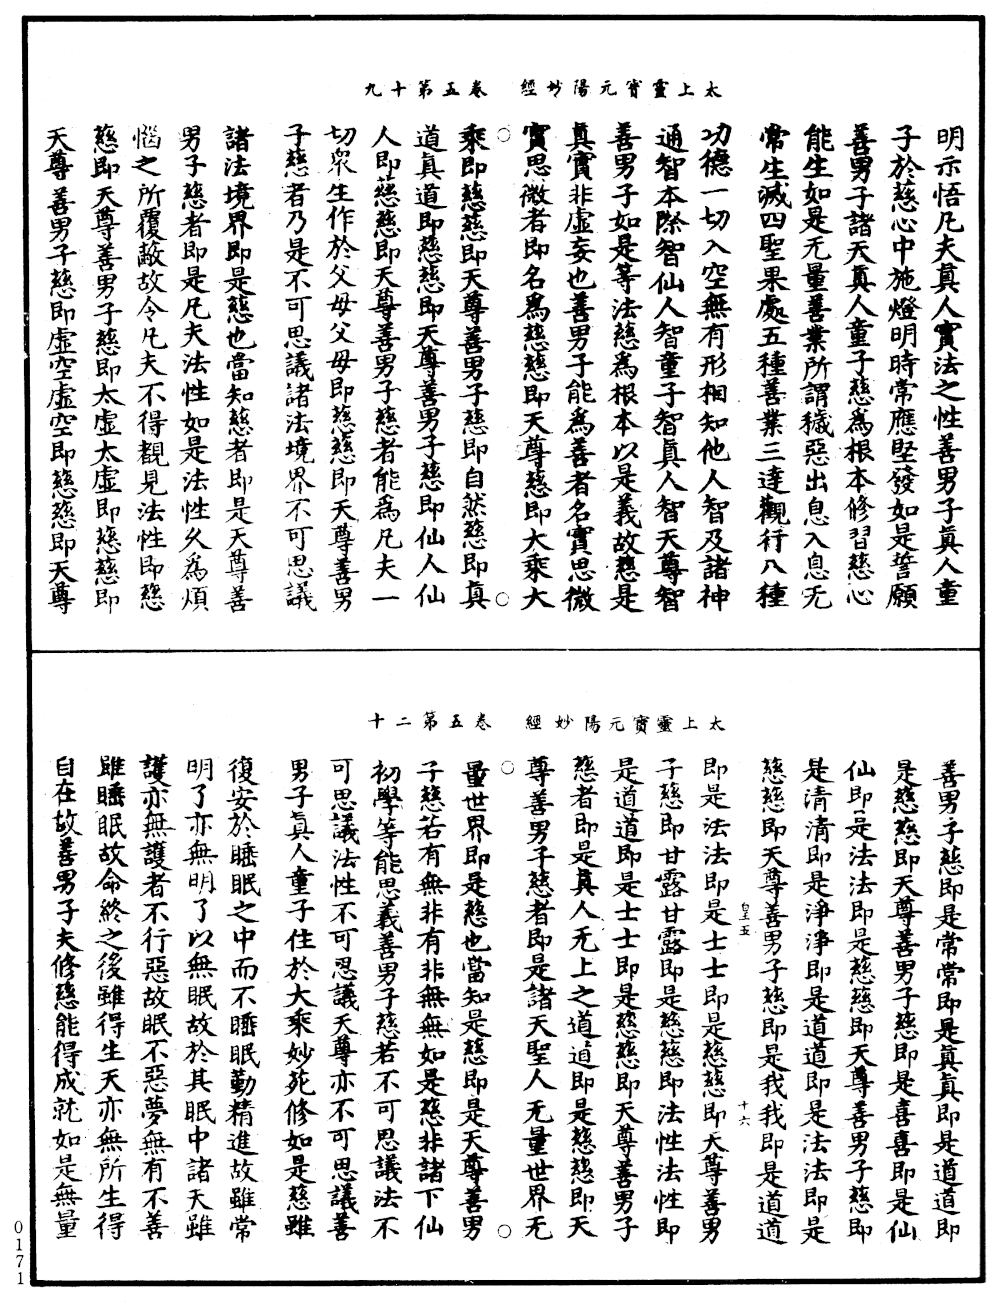 太上靈寳元陽妙經　卷五第十九
明示悟凡夫真人實法之性善男子真人童
子於慈心中施燈明時常應堅發如是誓願
善男子諸天真人童子慈爲根本修習慈心
能生如是无量善業所謂穢惡出息入息无
常生滅四聖果處五種善業三達觀行八種
功德一切入空無有形相知他人智及諸神
通智本際智仙人智童子智真人智天尊智
善男子如是等法慈爲根本以是義故慈是
真實非虛妄也善男子能爲善者名實思微
實思微者即名爲慈慈即天尊慈即大乘大
乘即慈慈即天尊善男子慈即自然慈即真
道真道即慈慈即天尊善男子慈即仙人仙
人即慈慈即天尊善男子慈者能爲凡夫一
切衆生作於父母父母即慈慈即天尊善男
子慈者乃是不可思議諸法境界不可思議
諸法境界即是慈也當知慈者即是天尊善
男子慈者即是凡夫法性如是法性久為煩
惱之所覆蔽故令凡夫不得覩見法性即慈
慈即天尊善男子慈即太虛太虛即慈慈即
天尊善男子慈即虛空虛空即慈慈即天尊
太上靈寳元陽妙經　卷五第二十
善男子慈即是常常即是真真即是道道即
是慈慈即天尊善男子慈即是喜喜即是仙
仙即是法法即是慈慈即天尊善男子慈即
是清清即是淨淨即是道道即是法法即是
慈慈即天尊善男子慈即是我我即是道道
皇五　十六
即是法法即是士士即是慈慈即天尊善男
子慈即甘露甘露即是慈慈即法性法性即
是道道即是士士即是慈慈即天尊善男子
慈者即是真人无上之道道即是慈慈即天
尊善男子慈者即是諸天聖人无量世界无
量世界即是慈也當知是慈即是天尊善男
子慈若有無非有非無無如是慈非諸下仙
初學等能思義善男子慈若不可思議法不
可思議法性不可忍議天尊亦不可思議善
男子真人童子住於大乘妙苑修如是慈雖
復安於睡眠之中而不睡眠勤精進故雖常
明了亦無明了以無眠故於其眠中諸天雖
護亦無護者不行惡故眠不惡夢無有不善
雖睡眠故命終之後雖得生天亦無所生得
自在故善男子夫修慈能得成就如是無量
0171